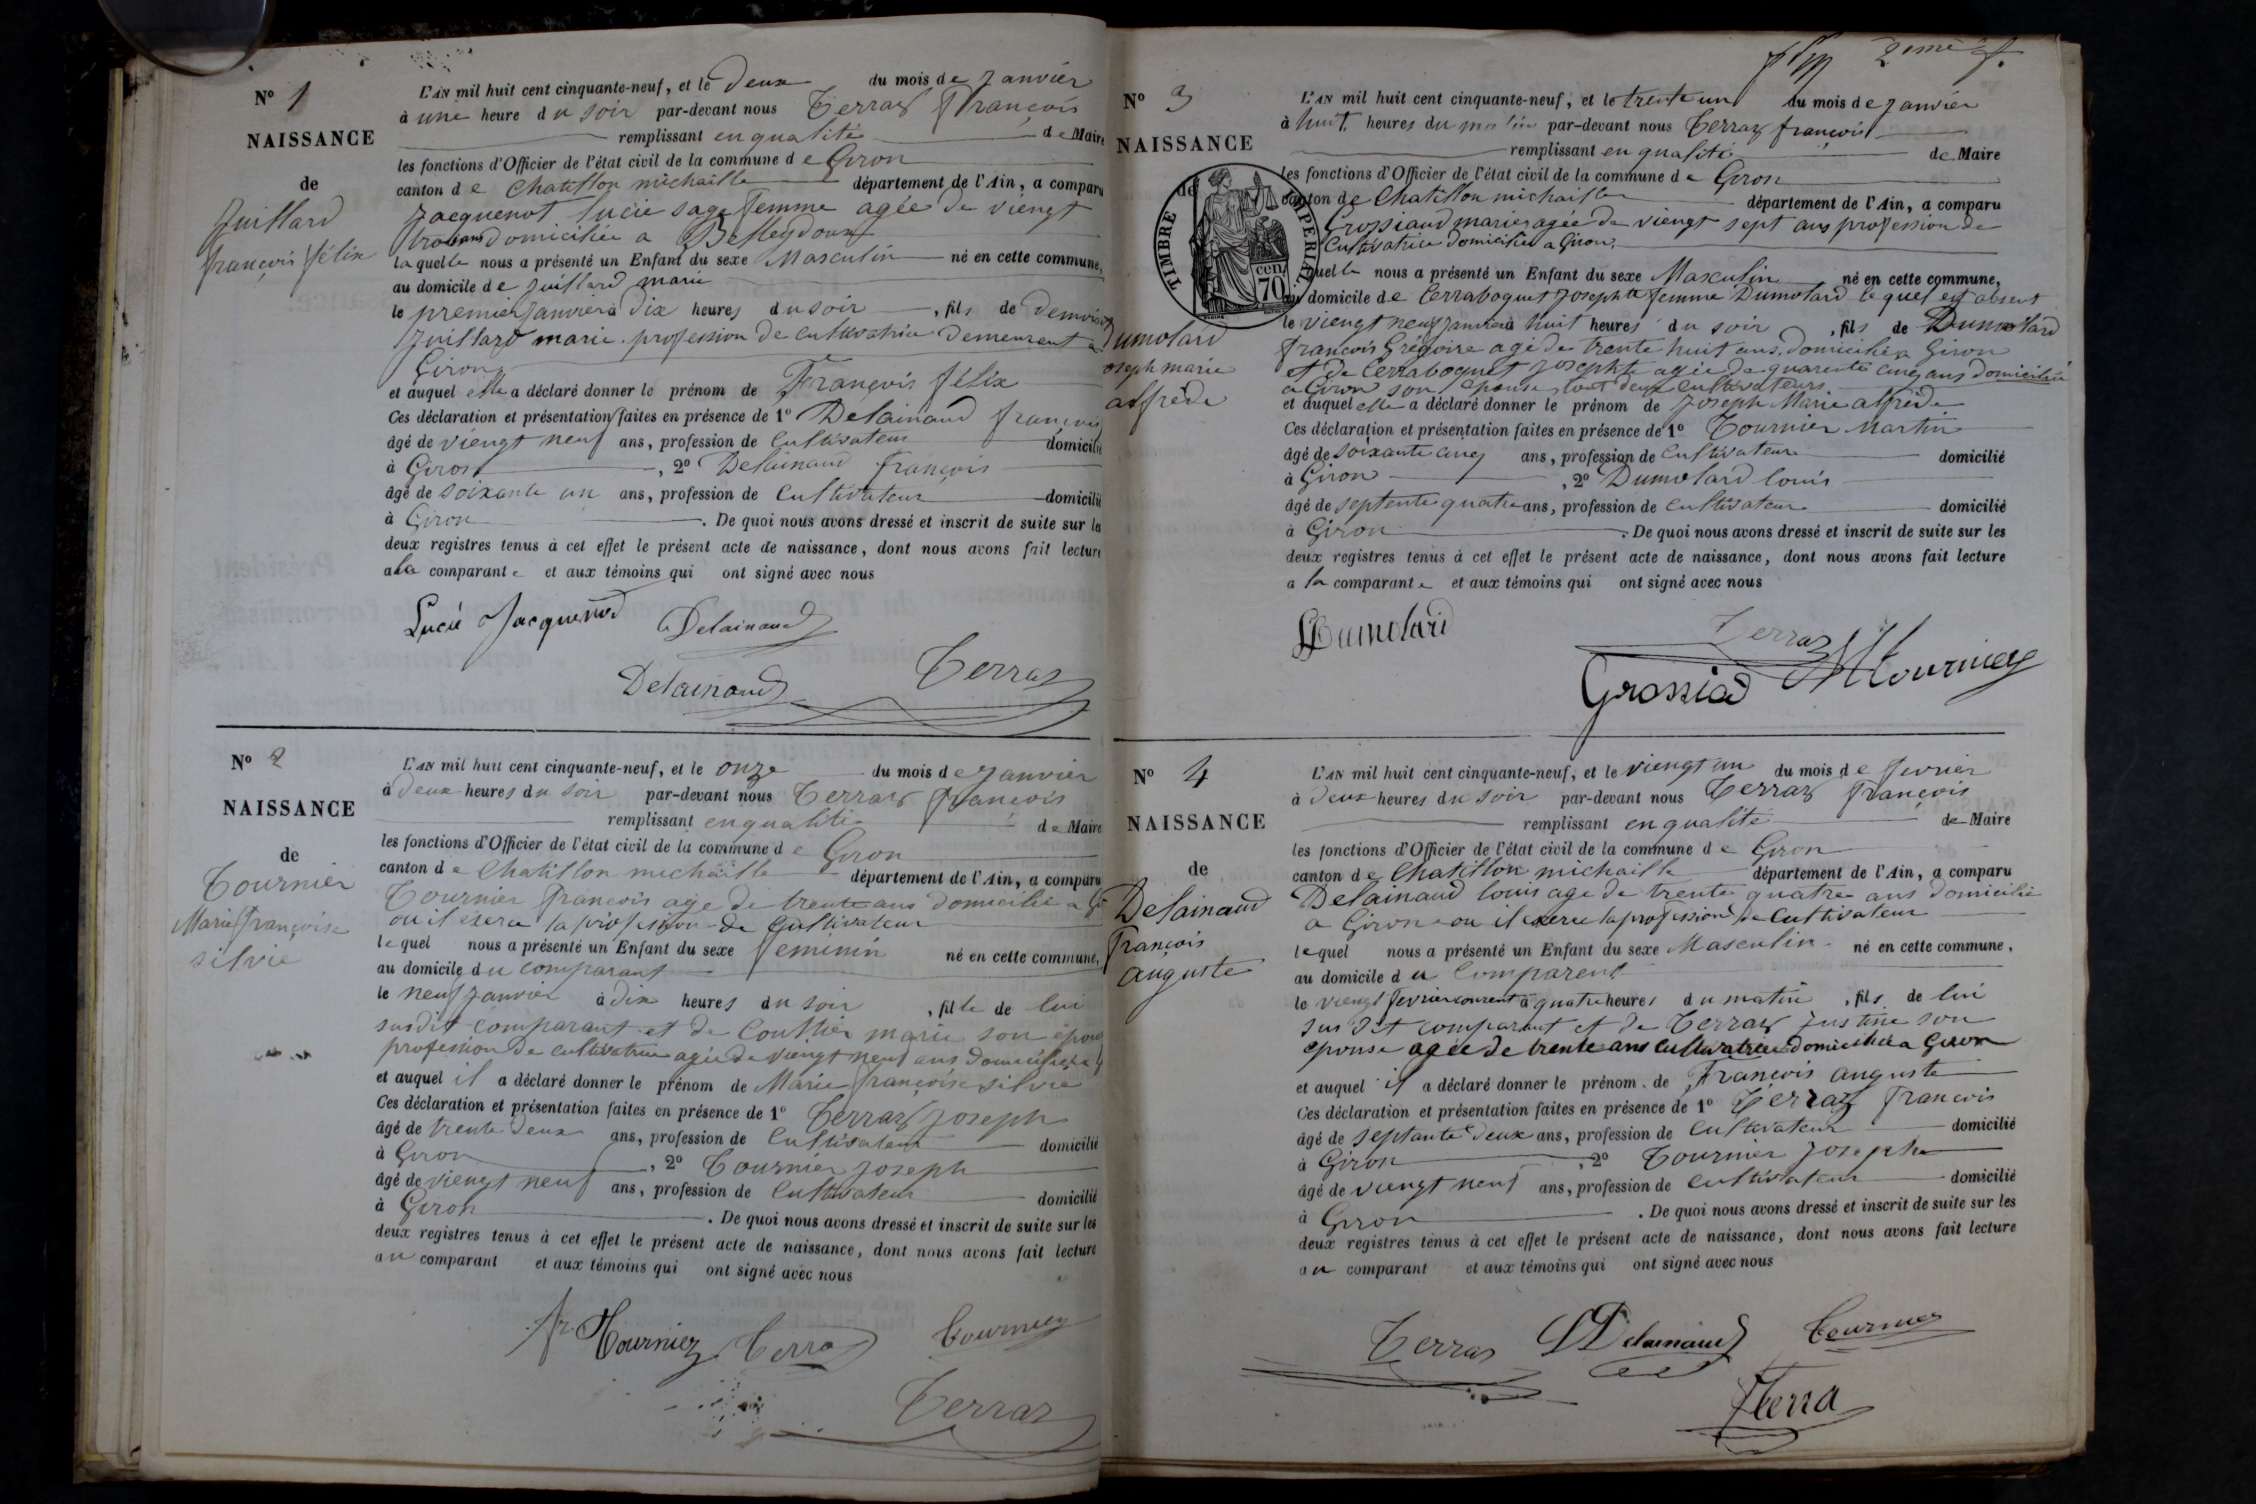 N° 1
NAISSANCE
de
Juillard
françois félix
L'AN mil huit cent cinquante-neuf, et le deux du mois de Janvier
à une heure du soir par-devant nous Terraz François
remplissant en qualité de Maire
les fonctions d'Officier de l'état civil de la commune de Giron
canton de Chatillon michaille département de l'Ain, a comparu
Jacquenot lucie sage femme agée de viengt
trois ans domiciliée a Belleydoux
laquelle nous a présenté un Enfant du sexe Masculin né en cette commune,
au domicile de Juillard marie
le premier Janvier à dix heures du soir, fils de
Juillard marie profession de cultivatrice demeurent a
Giron
et auquel elle a déclaré donner le prénom de François félix
Ces déclaration et présentation faites en présence de 1° Delainaud françois
âgé de viengt neuf ans, profession de Cultivateur domicilié
à Giron, 2° Delainaud françois
âgé de soixante un ans, profession de Cultivateur domicilié
à Giron. De quoi nous avons dressé et inscrit de suite sur les
deux registres tenus à cet effet le présent acte de naissance, dont nous avons fait lecture
a la comparante et aux témoins qui ont signé avec nous
Lucie Jacquenod Delainaud
Delainaud Terraz
N° 2
NAISSANCE
de
Tournier
Marie françoise
silvie
L'AN mil huit cent cinquante-neuf, et le onze du mois de Janvier
à deux heures du soir par-devant nous Terraz françois
remplissant en qualité de Maire
les fonctions d'Officier de l'état civil de la commune de Giron
canton de Chatillon michaille département de l'Ain, a comparu
Tournier françois age de trente ans domicilié a Gi
ou il exerce la profession de Cultivateur
lequel nous a présenté un Enfant du sexe feminin né en cette commune,
au domicile du comparant
le neuf Janvier à dix heures du soir, fille de lui
susdit comparant et de Couttier marie son épouse
profession de cultivatrice agée de viengt neuf ans domiciliée a G
et auquel il a déclaré donner le prénom de Marie françoise silvie
Ces déclaration et présentation faites en présence de 1° Terraz Joseph
âgé de trente deux ans, profession de Cultivateur domicilié
à Giron, 2° Tournier Joseph
âgé de viengt neuf ans, profession de Cultivateur domicilié
à Giron. De quoi nous avons dressé et inscrit de suite sur les
deux registres tenus à cet effet le présent acte de naissance, dont nous avons fait lecture
au comparant et aux témoins qui ont signé avec nous
fr. Tournier Terraz Tournier
Terraz
2eme f.
N° 3
NAISSANCE
de
TIMBRE IMPERIAL
70 cen.
Dumolard
Joseph marie
alfrède
L'AN mil huit cent cinquante-neuf, et le trente un du mois de Janvier
à huit heures du matin par-devant nous Terraz françois
remplissant en qualité de Maire
les fonctions d'Officier de l'état civil de la commune de Giron
canton de Chatillon michaille département de l'Ain, a comparu
Grossiaud marie agée de viengt sept ans profession de
Cultivatrice domiciliée a Giron
laquelle nous a présenté un Enfant du sexe Masculin né en cette commune,
au domicile de Cerraboquet Josephte femme Dumolard lequel est absent
le viengt neuf Janvier à huit heures du soir, fils de Dumolard
françois Grégoire agé de trente huit ans domicilié a Giron
et de Cerraboquet Josephte agée de quarente cinq ans domiciliée
a Giron son épouse tout deux cultivateurs
et auquel elle a déclaré donner le prénom de Joseph Marie alfrède
Ces déclaration et présentation faites en présence de 1° Tournier Martin
âgé de soixante cinq ans, profession de Cultivateur domicilié
à Giron, 2° Dumolard louis
âgé de septente quatre ans, profession de Cultivateur domicilié
à Giron. De quoi nous avons dressé et inscrit de suite sur les
deux registres tenus à cet effet le présent acte de naissance, dont nous avons fait lecture
a la comparante et aux témoins qui ont signé avec nous
L Dumolard Terraz
Grossiad M Tournier
N° 4
NAISSANCE
de
Delainaud
François
auguste
L'AN mil huit cent cinquante-neuf, et le viengt un du mois de fevrier
à deux heures du soir par-devant nous Terraz françois
remplissant en qualité de Maire
les fonctions d'Officier de l'état civil de la commune de Giron
canton de Chatillon michaille département de l'Ain, a comparu
Delainaud louis age de trente quatre ans domicilié
a Giron ou il exerce la profession de Cultivateur
lequel nous a présenté un Enfant du sexe Masculin né en cette commune,
au domicile du Comparent
le viengt fevrier courent à quatre heures du matin, fils de lui
sus dit comparant et de Terraz Justine son
epouse agée de trente ans cultivatrice domiciliée a Giron
et auquel il a déclaré donner le prénom de François auguste
Ces déclaration et présentation faites en présence de 1° Terraz François
âgé de septante deux ans, profession de Cultivateur domicilié
à Giron, 2° Tournier Joseph
âgé de viengt neuf ans, profession de Cultivateur domicilié
à Giron. De quoi nous avons dressé et inscrit de suite sur les
deux registres tenus à cet effet le présent acte de naissance, dont nous avons fait lecture
au comparant et aux témoins qui ont signé avec nous
Terraz L Delainaud Tournier
Terra